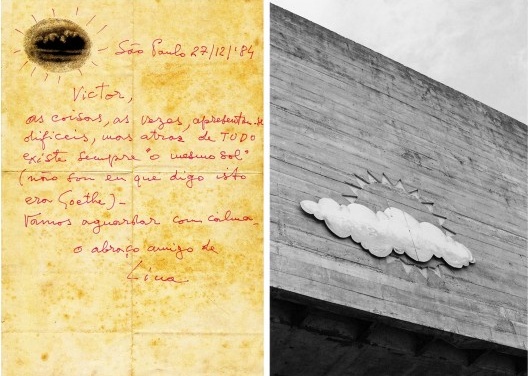 São Paulo 27/12/'84
Victor,
as coisas, as vezes, apresentam-se
dificeis, mas atraz de TUDO
existe sempre "o mesmo sol"
(não sou eu que digo isto
era Goethe)-
Vamos aguardar com calma.
o abraço amigo de
Lina